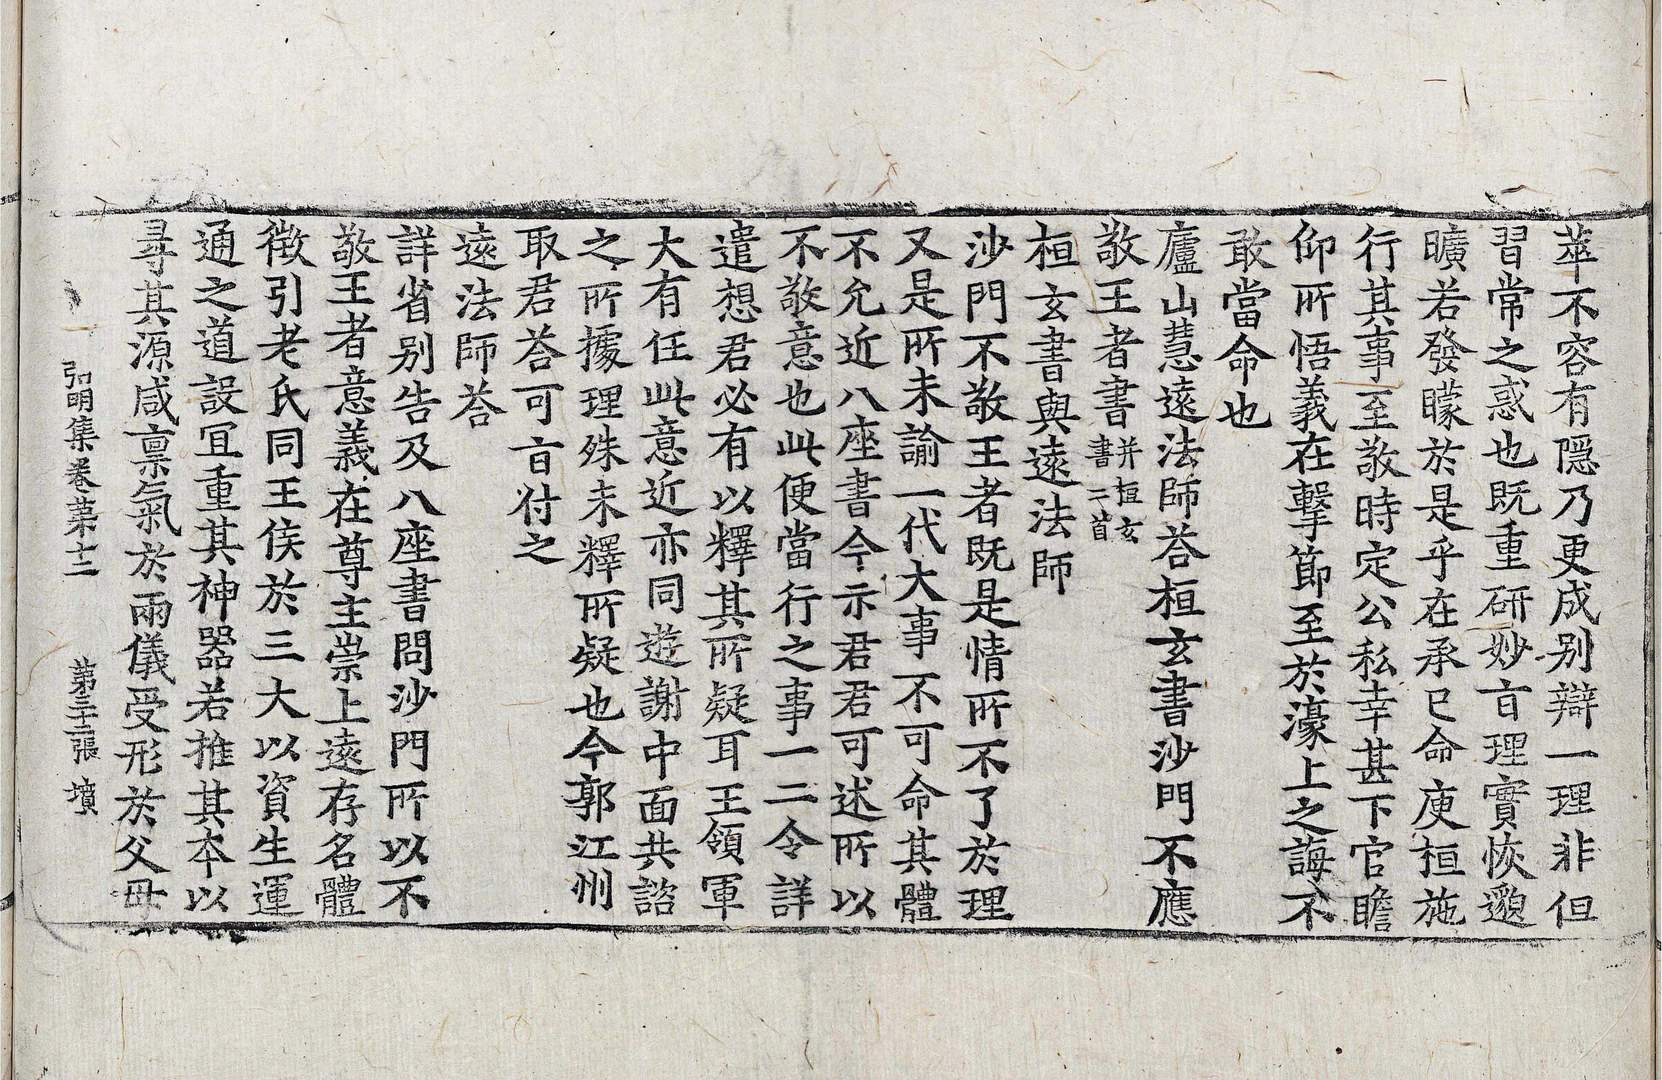 萃不容有隱乃更成别辯一理非但
習常之惑也既重研妙㫖理實恢邈
曠若發矇於是乎在承已命庾桓施
行其事至敬時定公私幸甚下官瞻
仰所悟義在擊節至於濠上之誨不
敢當命也
廬山慧遠法師荅桓玄書沙門不應
敬王者書并桓玄書二首
桓玄書與遠法師
沙門不敬王者既是情所不了於理
又是所未諭一代大事不可命其體
不允近八座書今示君君可述所以
不敬意也此便當行之事一二令詳
遣想君必有以釋其所疑耳王領軍
大有任此意近亦同遊謝中面共諮
之所據理殊未釋所疑也今郭江州
取君荅可㫖付之
遠法師荅
詳省别告及八座書問沙門所以不
敬王者意義在尊主崇上遠存名體
徵引老氏同王侯於三大以資生運
通之道設冝重其神器若推其本以
尋其源咸禀氣於兩儀受形於父母
弘明集卷第十二 第三十二張 墳